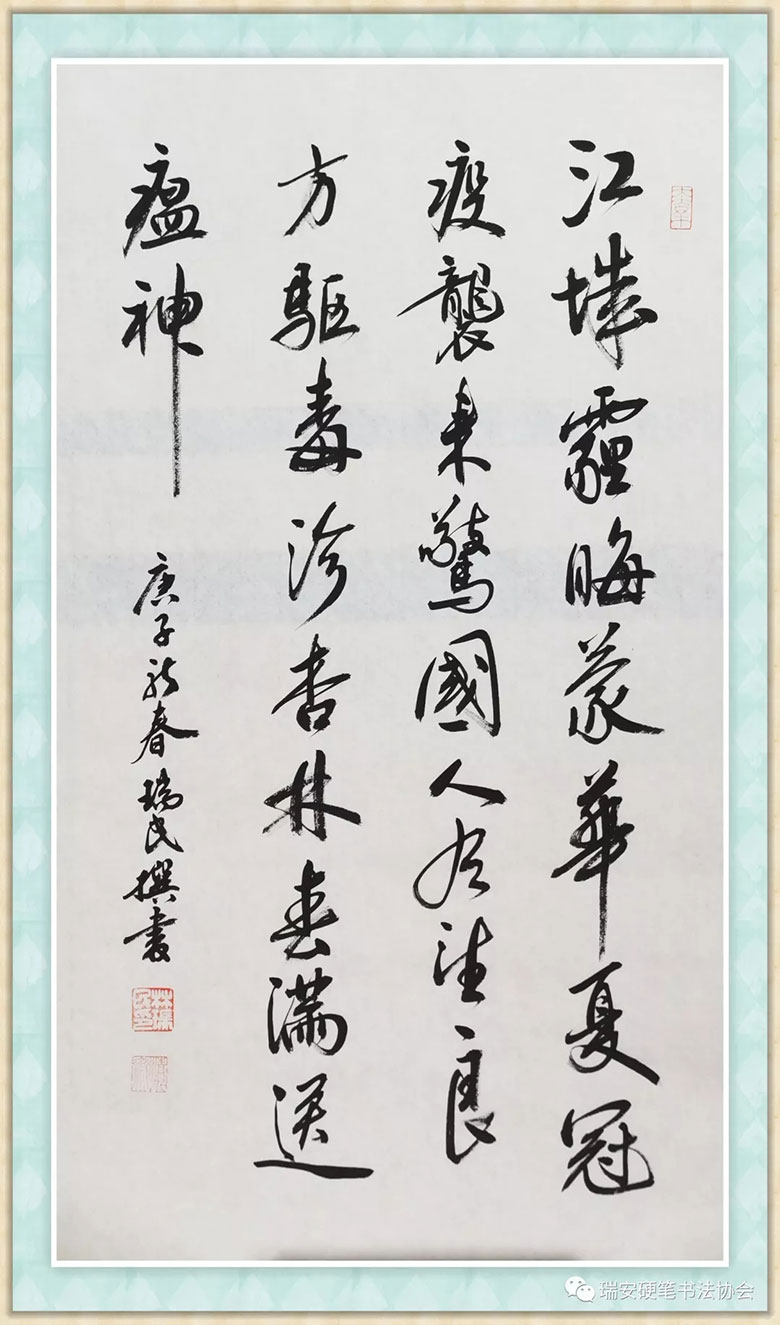 江城霾晦蒙華夏冠
疫襲来驚國人良
方驅毒沴杏林春滿送
瘟神
庚子新春瑞民撰書
瑞安硬笔书法协会